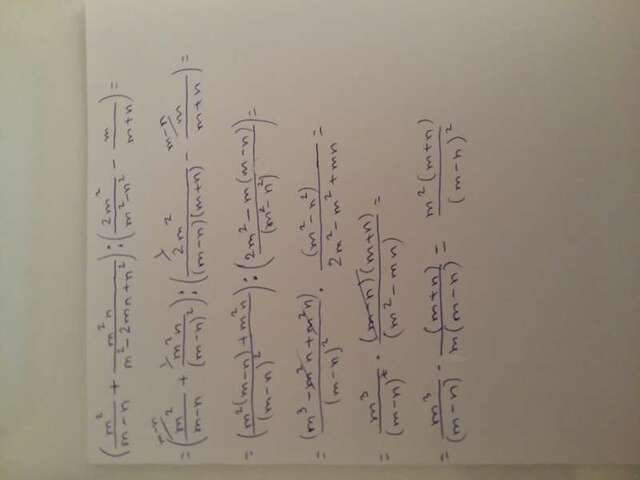 (m²/(m-n) + m²n/(m²-2mn+n²)) : (2m²/(m²-n²) - m/(m+n)) =
= (m²/(m-n) + m²n/(m-n)²) : (2m²/((m-n)(m+n)) - m/(m+n)) =
= ((m²(m-n)+m²n)/(m-n)²) : ((2m²-m(m-n))/(m²-n²)) =
= (m³-m²n+m²n)/(m-n)² · (m²-n²)/(2m²-m²+mn) =
= m³/(m-n)² · (m-n)(m+n)/(m²-mn) =
= m³/(m-n) · (m+n)/n(m-n) = m²(m+n)/(m-n)²